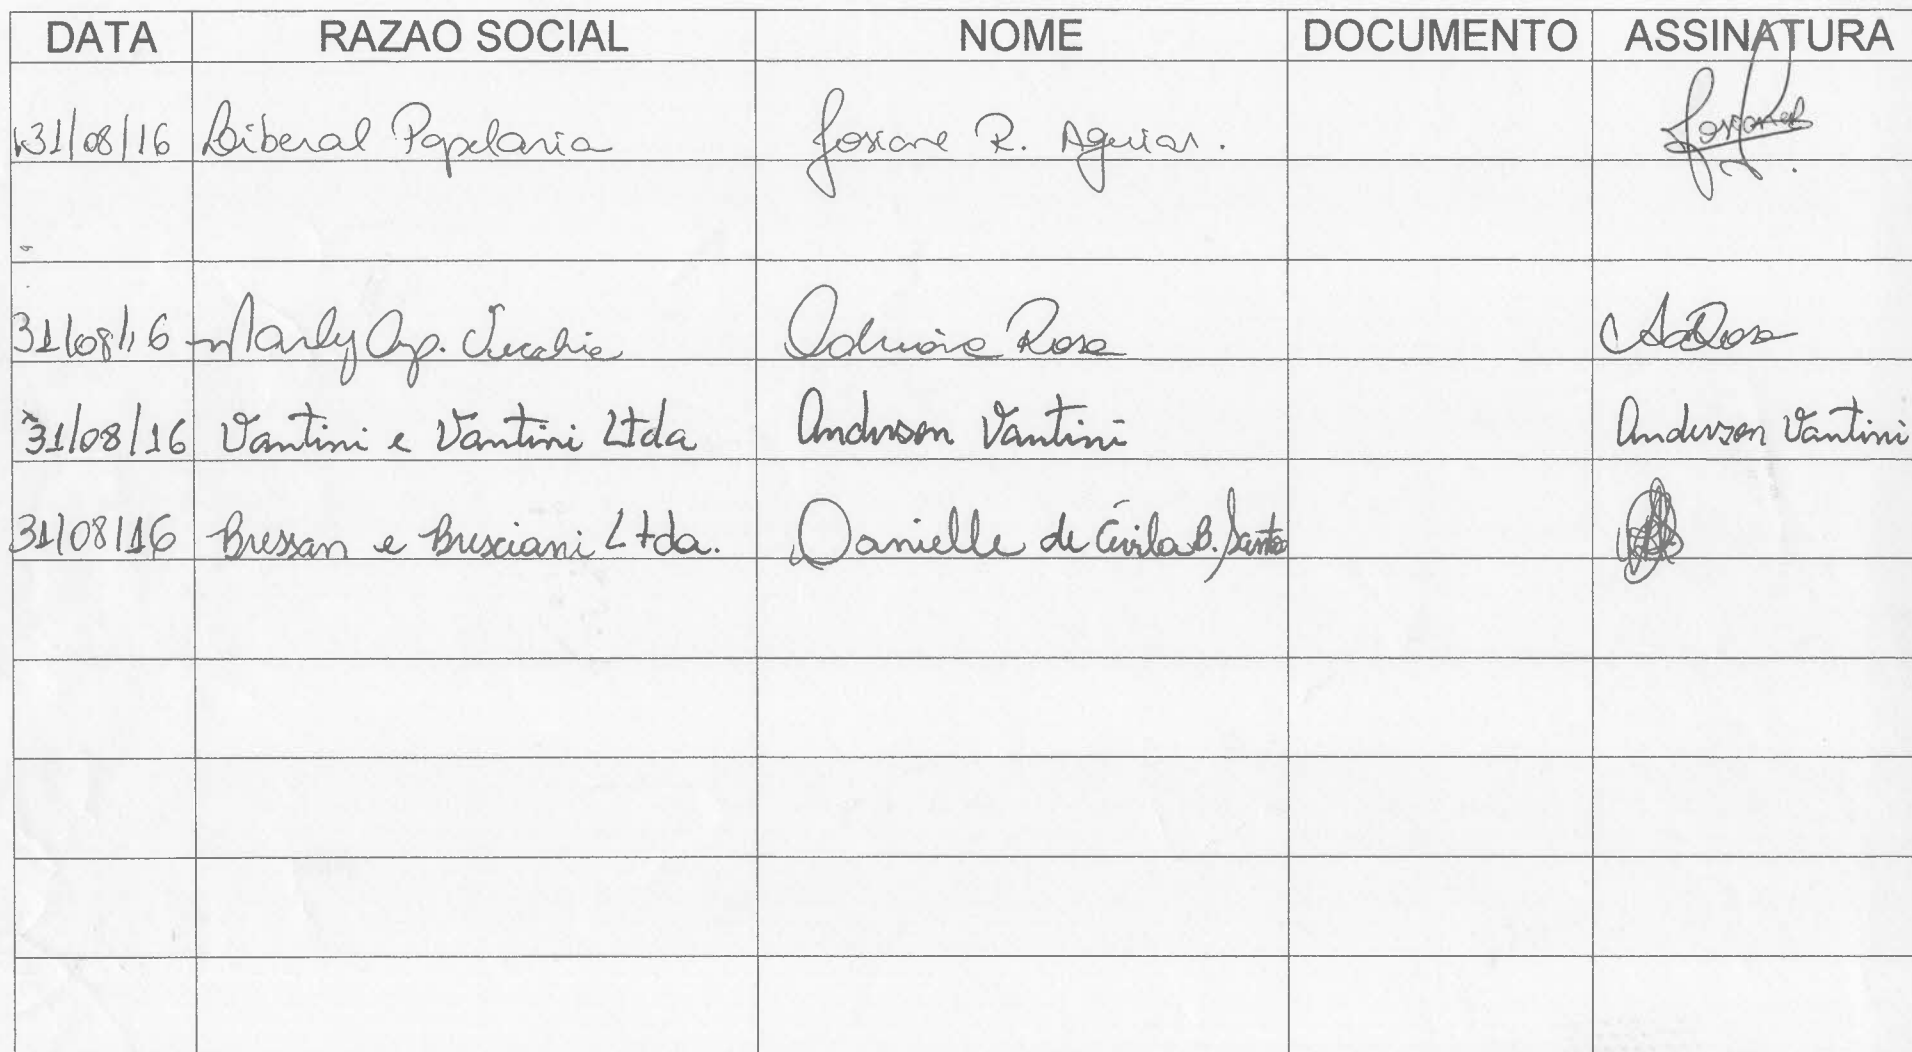 DATA RAZAO SOCIAL NOME DOCUMENTO ASSINATURA
31/08/16 Liberal Papelaria Josiane R. Aguiar.
31/08/16 Marly Ap. Rosa
31/08/16 Vantini e Vantini Ltda Anderson Vantini Anderson Vantini
31/08/16 Bressan e Bresciani Ltda. Danielle de Ávila B. Santos